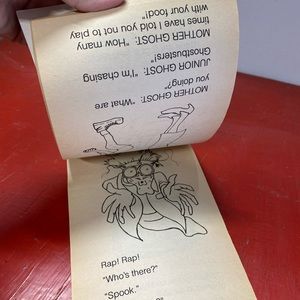 MOTHER GHOST: "What are
you doing?"
JUNIOR GHOST: "I'm chasing
Ghostbusters!"
MOTHER GHOST: "How many
times have I told you not to play
with your food!"
Rap! Rap!
"Who's there?"
"Spook."